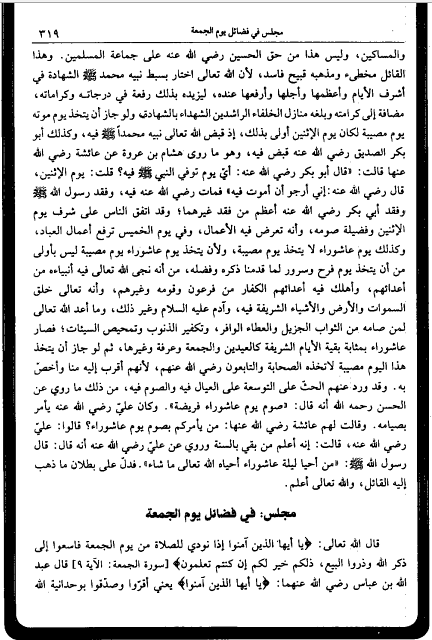 مجلس في فضائل يوم الجمعة
٣١٩
والمساكين، وليس هذا من حق الحسين رضي الله عنه على جماعة المسلمين. وهذا
القائل مخطىء ومذهبه قبيح فاسد، لأن الله تعالى اختار بسبط نبيه محمد ﷺ الشهادة في
أشرف الأيام وأعظمها وأجلها وأرفعها عنده، ليزيده بذلك رفعة في درجاته وكراماته،
مضافة إلى كرامته وبلغه منازل الخلفاء الراشدين الشهداء بالشهادة، ولو جاز أن يتخذ يوم موته
يوم مصيبة لكان يوم الإثنين أولى بذلك، إذ قبض الله تعالى نبيه محمداً ﷺ فيه، وكذلك أبو
بكر الصديق رضي الله عنه قبض فيه، وهو ما روى هشام بن عروة عن عائشة رضي الله
عنها قالت: «قال أبو بكر رضي الله عنه: أيّ يوم توفي النبي ﷺ فيه؟ قلت: يوم الإثنين،
قال رضي الله عنه: إني أرجو أن أموت فيه» فمات رضي الله عنه فيه، وفقد رسول الله ﷺ
وفقد أبي بكر رضي الله عنه أعظم من فقد غيرهما؛ وقد اتفق الناس على شرف يوم
الإثنين وفضيلة صومه، وأنه تعرض فيه الأعمال، وفي يوم الخميس ترفع أعمال العباد،
وكذلك يوم عاشوراء لا يتخذ يوم مصيبة، ولأن يتخذ يوم عاشوراء يوم مصيبة ليس بأولى
من أن يتخذ يوم فرح وسرور لما قدمنا ذكره وفضله، من أنه نجى الله تعالى فيه أنبياءه من
أعدائهم، وأهلك فيه أعدائهم الكفار من فرعون وقومه وغيرهم، وأنه تعالى خلق
السموات والأرض والأشياء الشريفة فيه، وآدم عليه السلام وغير ذلك، وما أعد الله تعالى
لمن صامه من الثواب الجزيل والعطاء الوافر، وتكفير الذنوب وتمحيص السيئات؛ فصار
عاشوراء بمثابة بقية الأيام الشريفة كالعيدين والجمعة وعرفة وغيرها، ثم لو جاز أن يتخذ
هذا اليوم مصيبة لاتخذه الصحابة والتابعون رضي الله عنهم، لأنهم أقرب إليه منا وأخصّ
به. وقد ورد عنهم الحثّ على التوسعة على العيال فيه والصوم فيه، من ذلك ما روي عن
الحسن رحمه الله أنه قال: «صوم يوم عاشوراء فريضة». وكان عليّ رضي الله عنه يأمر
بصيامه. وقالت لهم عائشة رضي الله عنها: من يأمركم بصوم يوم عاشوراء؟ قالوا: عليّ
رضي الله عنه، قالت: إنه أعلم من بقي بالسنة وروي عن عليّ رضي الله عنه أنه قال: قال
رسول الله ﷺ: «من أحيا ليلة عاشوراء أحياه الله تعالى ما شاء». فدلّ على بطلان ما ذهب
إليه القائل، والله تعالى أعلم.
مجلس: في فضائل يوم الجمعة
قال الله تعالى: ﴿يا أيها الذين آمنوا إذا نودي للصلاة من يوم الجمعة فاسعوا إلى
ذكر الله وذروا البيع، ذلكم خير لكم إن كنتم تعلمون﴾ [سورة الجمعة: الآية ٩] قال عبد
الله بن عباس رضي الله عنهما: ﴿يا أيها الذين آمنوا﴾ يعني أقرّوا وصدّقوا بوحدانية الله